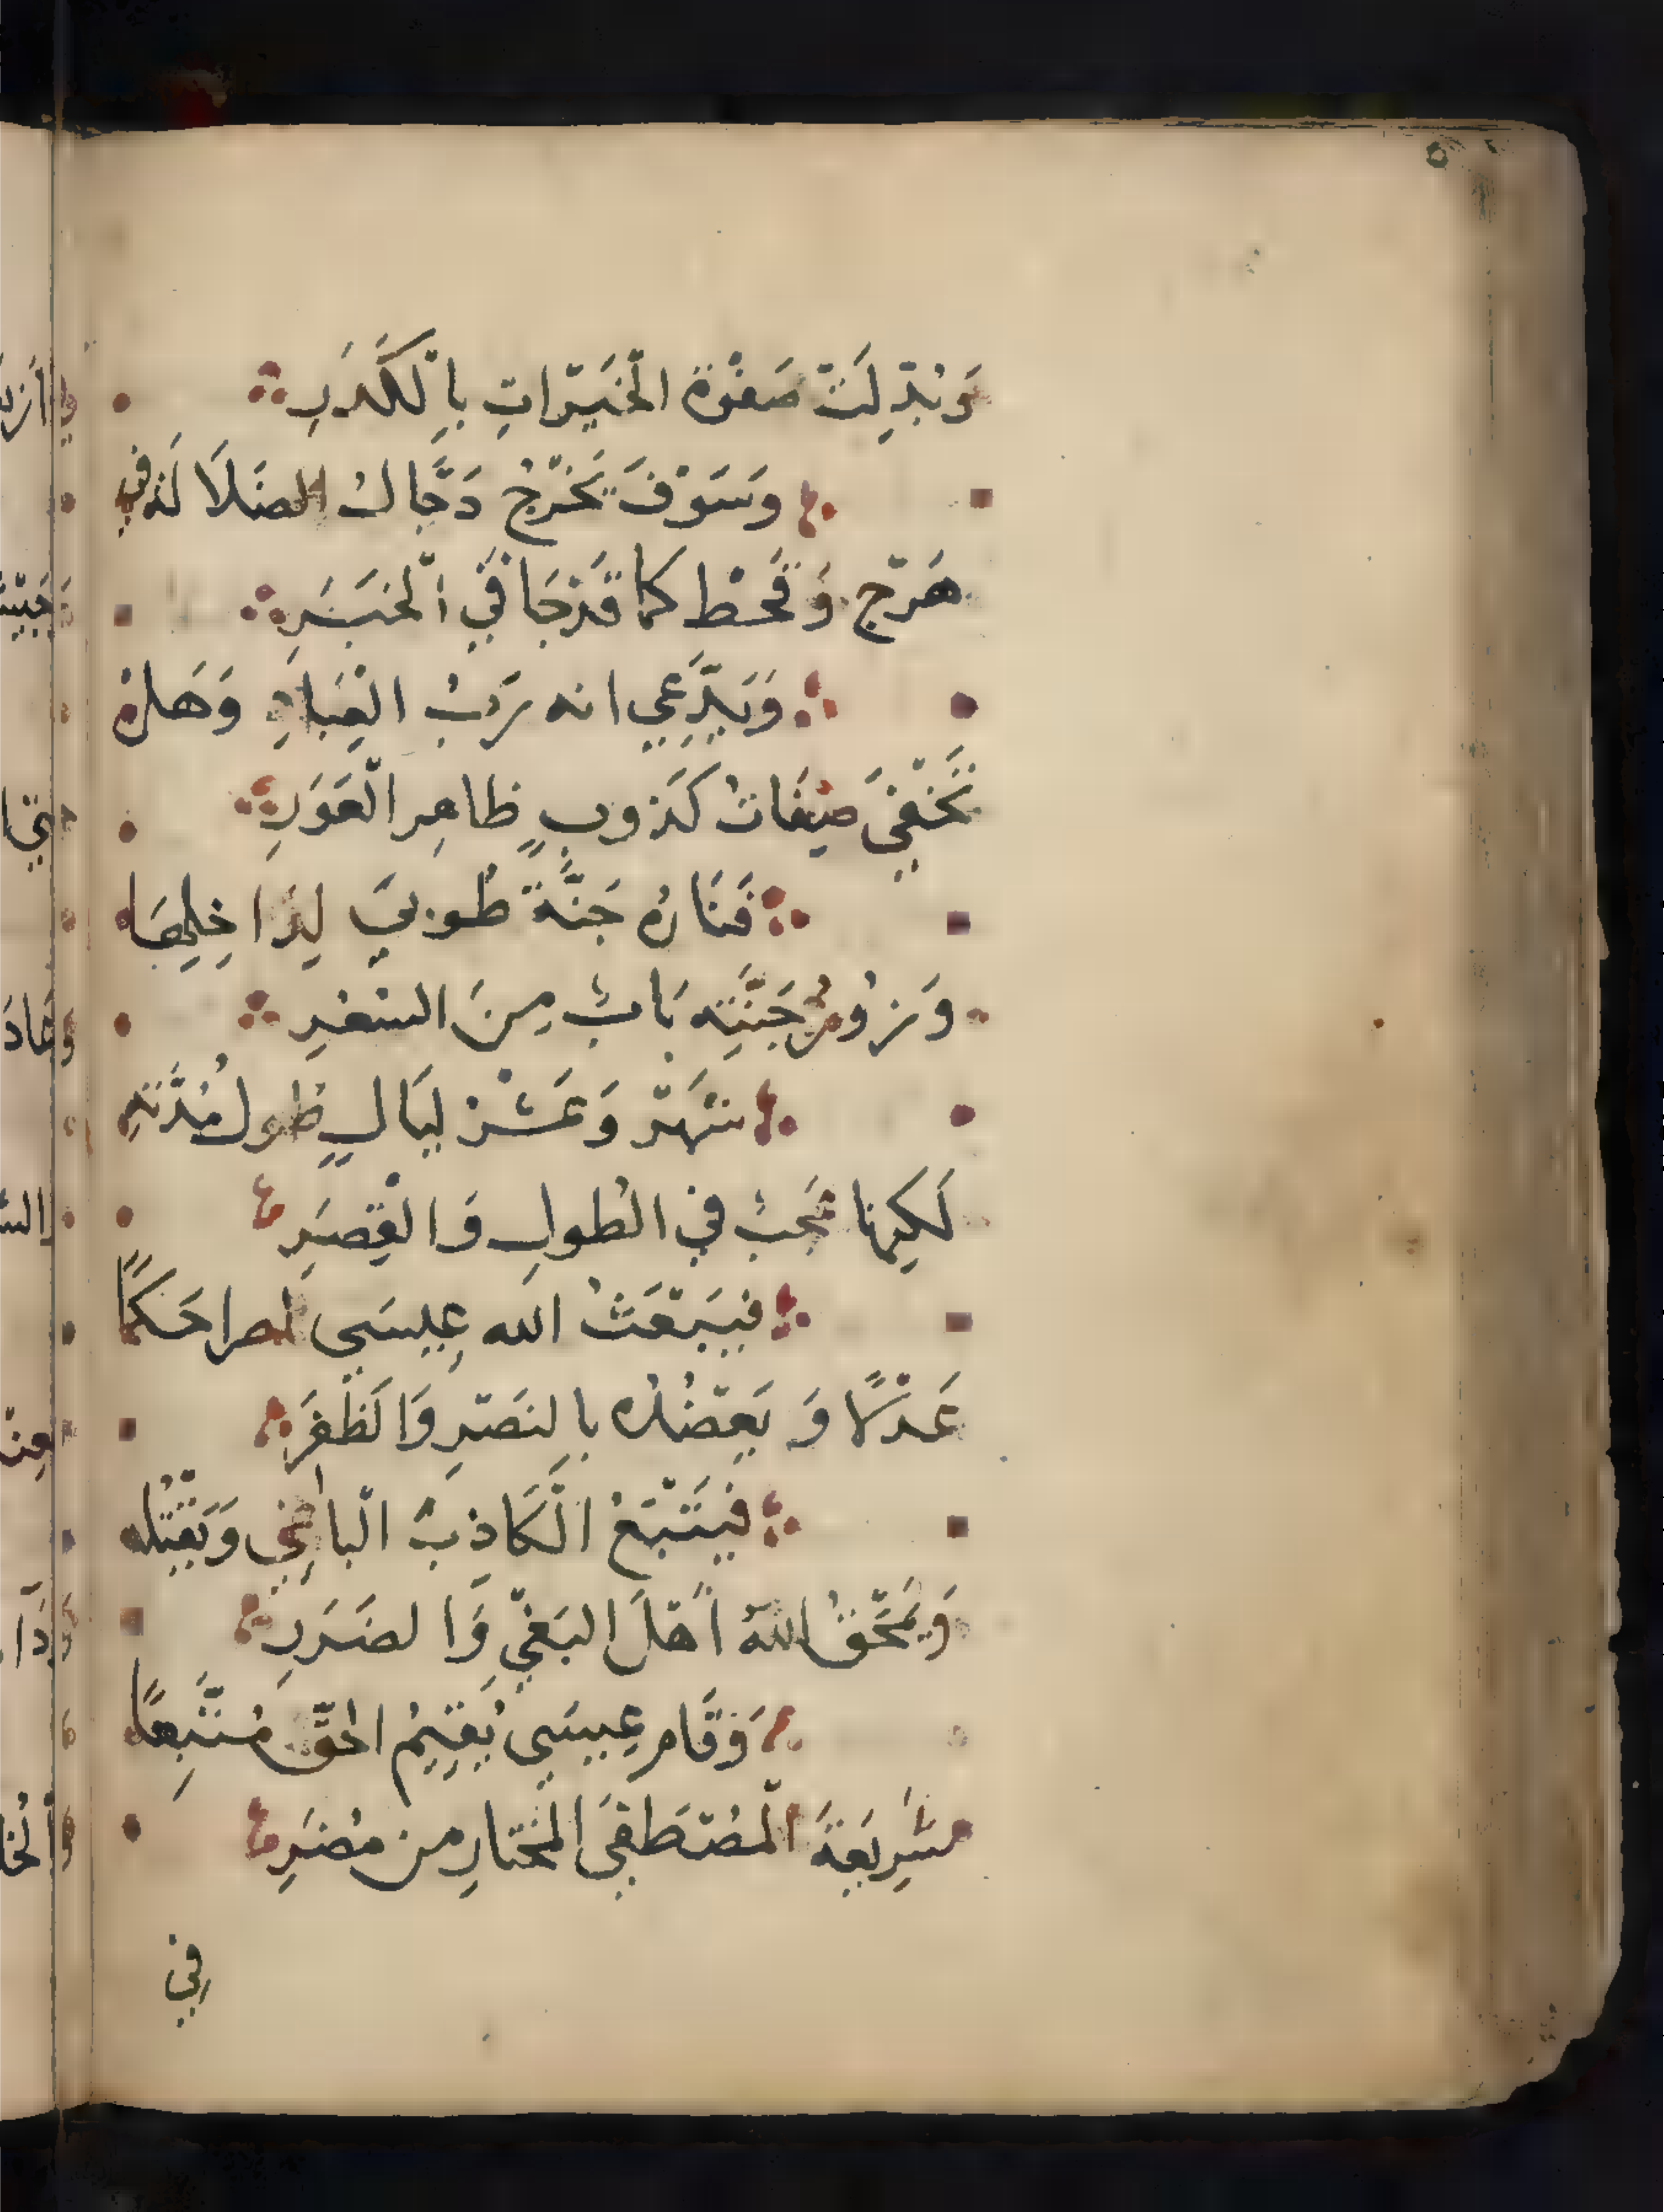 وَبُدِّلَتْ صَفْوَة الْخَيْرَاتِ بِالْكَدَرِ
وَسَوْفَ يَخْرُجُ دَجَّالُ الضَلَالَة في
هَرْجٍ وَقَحْطٍ كما قَدْ جَا في الْخَبَرِ
وَيَدَّعِي انه رَبُ الْعِبَادِ وَهَلْ
تَخْفَى صِفَاتُ كَذوبٍ ظاهِرِ الْعَوَرِ
فَنَارُه جَنَّةٌ طُوبَى لِدَاخِلِهَا
وَزُورُ جَنَّتِه بَابٌ مِنَ السَّقَرِ
شَهْرٌ وَعَشْرُ لَيَالٍ طُول مُدَّتهِ
لَكِنها عَجَبٌ في الطُولِ وَالْقِصَرِ
فَيَبْعَثُ الله عِيسَى ناصرا حَكَمًا
عَدْلًا وَيَعْضُدُه بالنَصْرِ وَالَظَفَرِ
فَيَتْبَعُ الْكَاذِبَ الْبَاغِي وَيَقْتُله
وَيَمْحَقُ اللهُ أَهْلَ البَغْيِ وَالضَرَرِ
وَقَام عِيسَى يُقِيمُ الحَقَّ مُتَّبِعًا
شَرِيعَةَ الْمُصْطَفَى الْمُخْتارِ من مُضَرِ
في